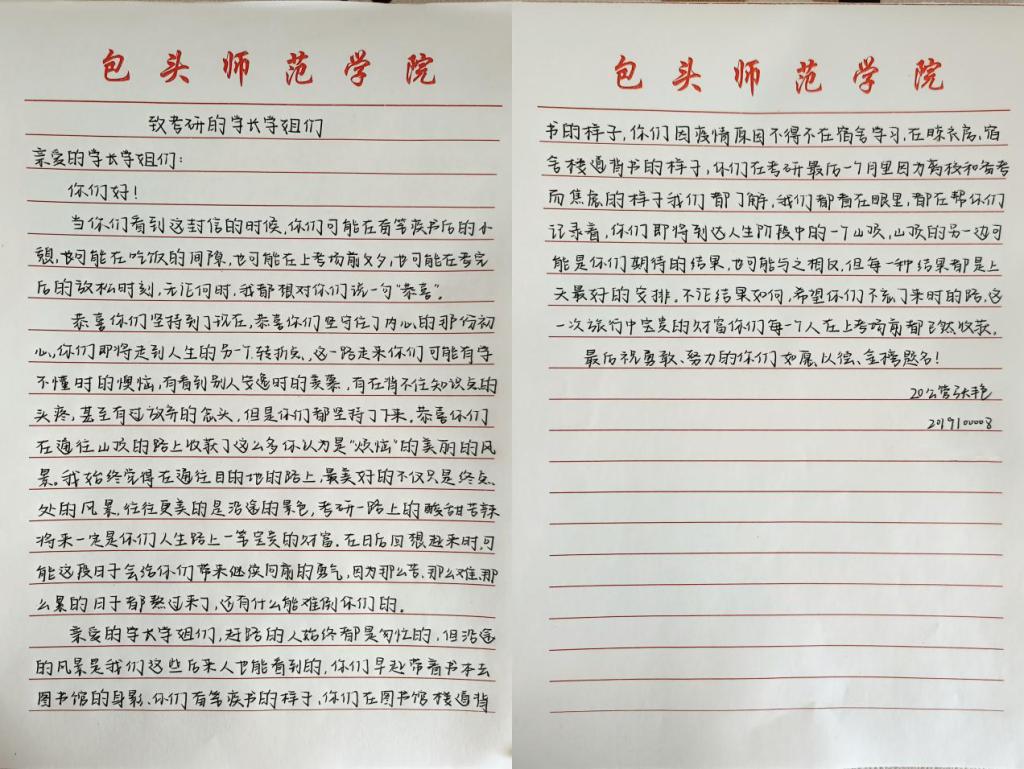 包头师范学院
致考研的学长学姐们
亲爱的学长学姐们：
你们好！
当你们看到这封信的时候，你们可能在奋笔疾书后的小
憩，也可能在吃饭的间隙，也可能在上考场前夕，也可能在考完
后的放松时刻，无论何时，我都想对你们说一句“恭喜”。
恭喜你们坚持到了现在，恭喜你们坚守住了内心的那份初
心，你们即将走到人生的另一个转折点，这一路走来你们可能有学
不懂时的懊恼，有看到别人安逸时的羡慕，有在背不住知识点的
头疼，甚至有过放弃的念头，但是你们都坚持了下来。恭喜你们
在通往山顶的路上收获了这么多你认为是“烦恼”的美丽的风
景。我始终觉得在通往目的地的路上，最美好的不仅只是终点
处的风景，往往更美的是沿途的景色，考研一路上的酸甜苦辣
将来一定是你们人生路上一笔宝贵的财富。在日后回想起来时，可
能这段日子会给你们带来继续向前的勇气，因为那么苦、那么难、那
么累的日子都熬过来了，还有什么能难倒你们的。
亲爱的学长学姐们，赶路的人始终都是匆忙的，但沿途
的风景是我们这些后来人也能看到的，你们早起带着书本去
图书馆的身影、你们奋笔疾书的样子，你们在图书馆楼道背
包头师范学院
书的样子，你们因疫情原因不得不在宿舍学习，在晾衣房、宿
舍楼道背书的样子，你们在考研最后一个月里因为离校和备考
而焦虑的样子我们都了解，我们都看在眼里，都在帮你们
记录着，你们即将到达人生阶段中的一个山顶，山顶的另一边可
能是你们期待的结果，也可能与之相反，但每一种结果都是上
天最好的安排。不论结果如何，希望你们不忘了来时的路，这
一次旅行中宝贵的财富你们每一个人在上考场前都已然收获。
最后祝勇敢、努力的你们如愿以偿、金榜题名！
20公管张艳
2019100008